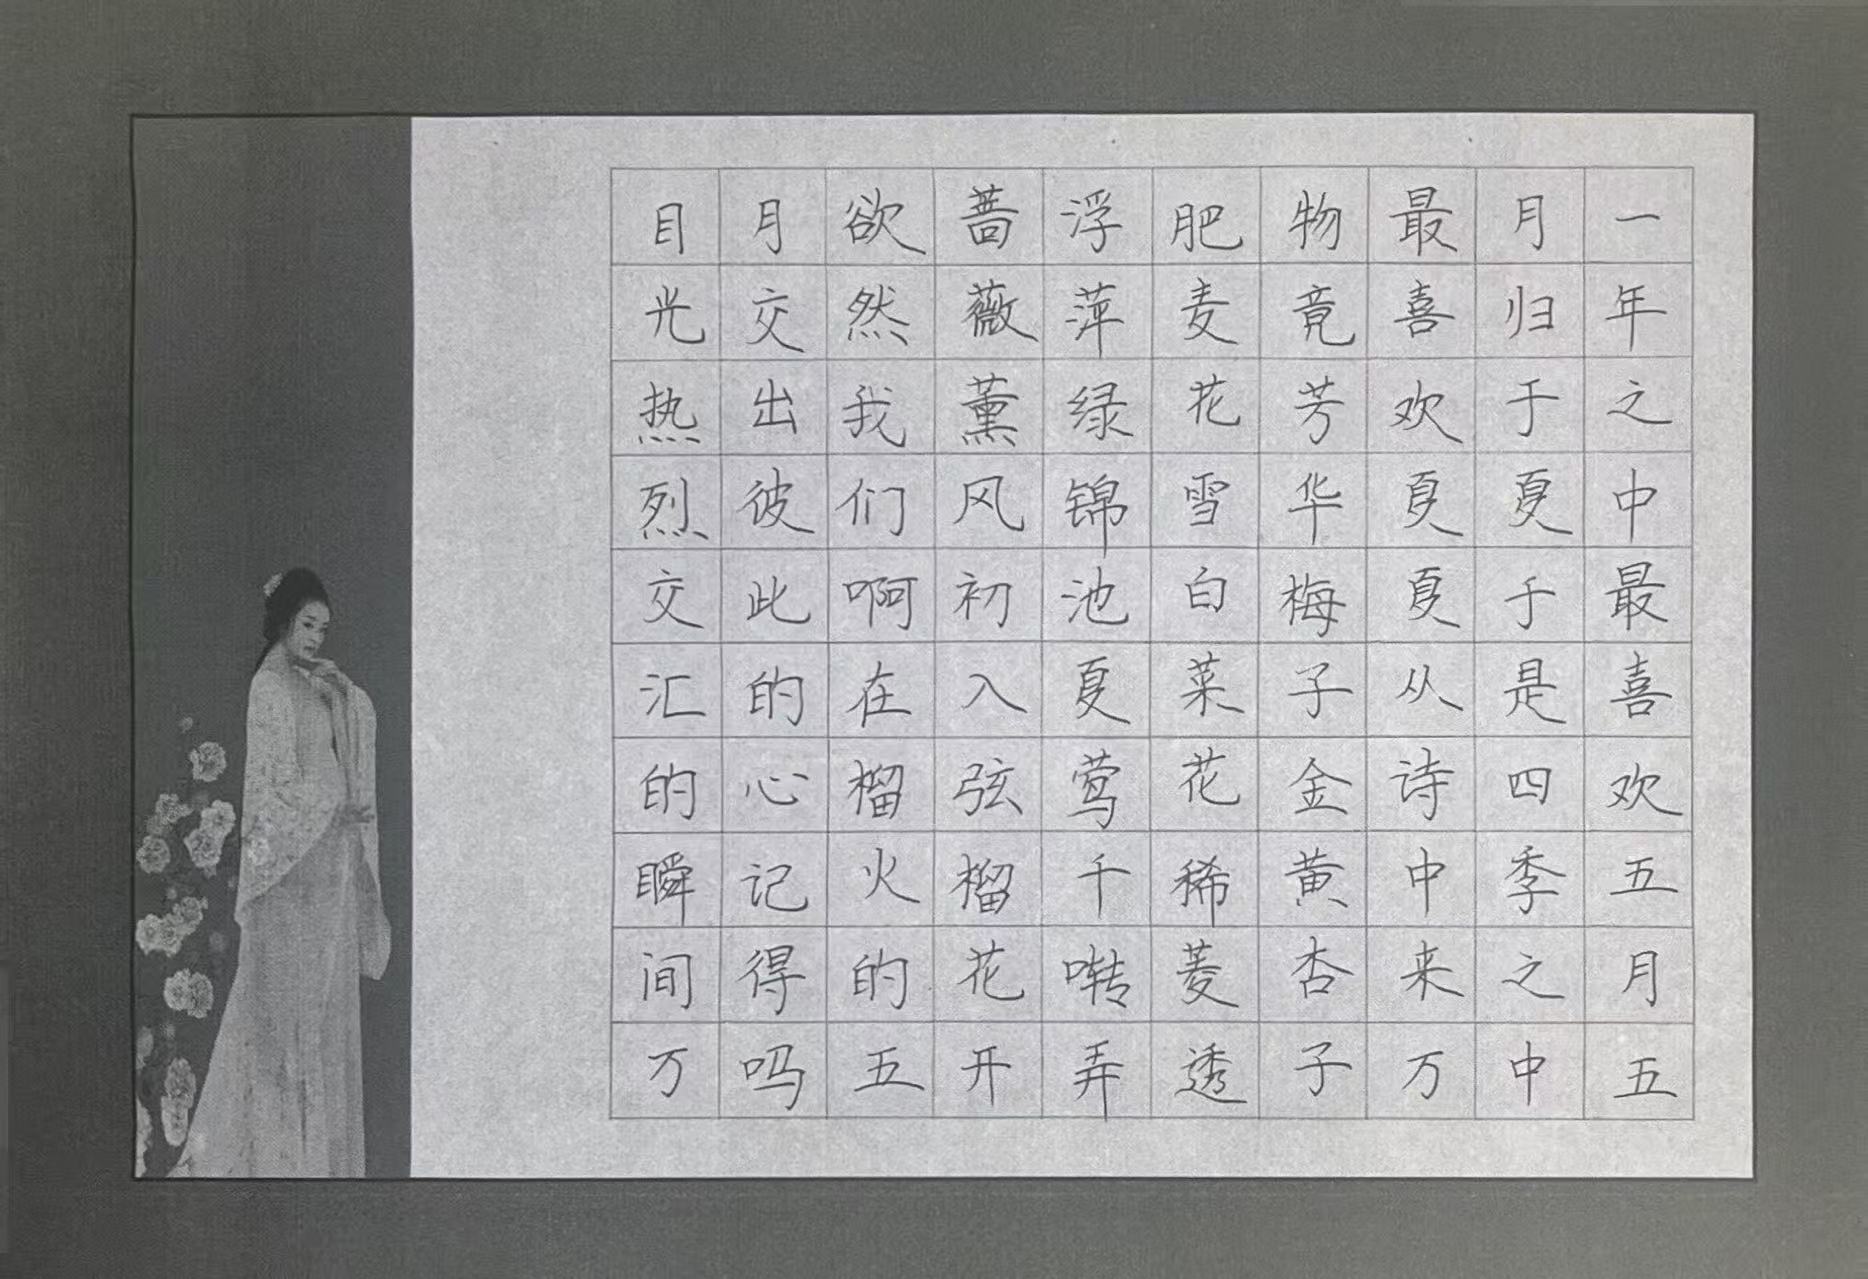 一年之中最喜欢五月五
月归于夏于是四季之中
最喜欢夏夏从诗中来万
物竟芳华梅子金黄杏子
肥麦花雪白菜花稀菱透
浮萍绿锦池夏莺千啭弄
蔷薇薰风初入弦榴花开
欲然我们啊在榴火的五
月交出彼此的心记得吗
目光热烈交汇的瞬间万